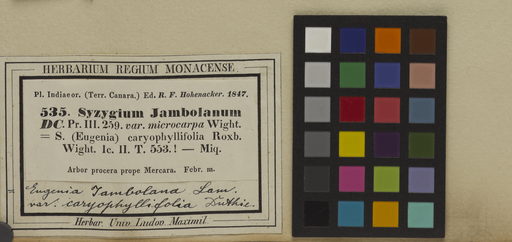 HERBARIUM REGIUM MONACENSE
Pl. Indiae or. (Terr. Canara.) Ed. R. F. Hohenacker. 1847.
535. Syzygium Jambolanum
DC. Pr. III. 259. var. microcarpa Wight.
= S. (Eugenia) caryophyllifolia Roxb.
Wight. Ic. II. T. 553.! — Miq.
Arbor procera prope Mercara. Febr. m.
= Eugenia Jambolana Lam.
var. caryophyllifolia Duthie.
Herbar. Univ. Ludov. Maximil.